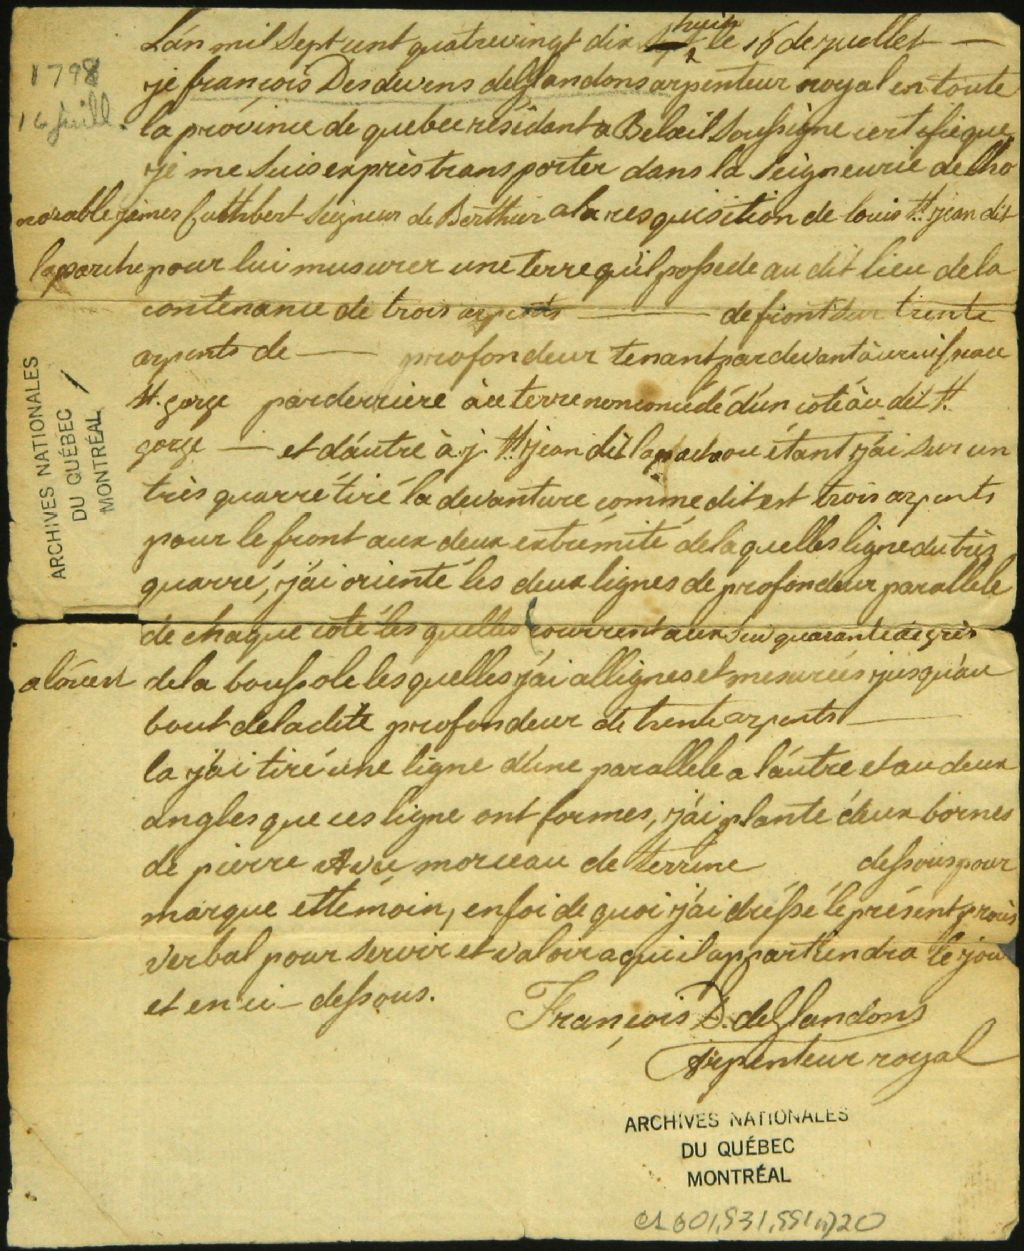 Lán mil Sept cent quatrevingt dix huit le 16 de juellet
1798
16 juill.
je françois Desdevens de Glandons arpenteur royal en toute
la province de quebec résidant a Belœil Soussigne certifie que
je me Suis exprès transporter dans la Seigneurie de lho
norable james Cuthbert Seigneur de Berthier a la resquisition de louis St jean dit
laparche pour lui musurer une terre quil possede au dit lieu de la
contenance de trois arpents de front Sur trente
arpents de profondeur tenant par devant à u ruisseau
St. gorge par derrière à ue terre non concédé d'un coté àu dit St.
gorge et dáutre à j. St jean dit lapache ou étant j'ai sur un
très quarré tiré la devanture comme dit est trois arpents
pour le front aux deux extrémité de laquelles ligne du très
quarré, j'ai orienté les deux lignes de profondeur parallele
de chaque coté les quelles courrent aux Sud quarante degrés
a lóuest de la boussole les quelles j'ai allignes et mesurées jusqu'au
bout de la dite profondeur de trente arpents
la j'ai tiré une ligne d'une parallele a láutre et au deux
angles que ces ligne ont formes, j'ai planté deux bornes
de pierre Avec morceau de terrine dessous pour
marque et témoin, en foi de quoi j'ai dréssé le présent procès
verbal pour servir et valoir a qui il appartiendra le jour
et en ci-dessous.
François D. de Glandons
Arpenteur royal
ARCHIVES NATIONALES
DU QUÉBEC
MONTRÉAL
ARCHIVES NATIONALES
DU QUÉBEC
MONTRÉAL